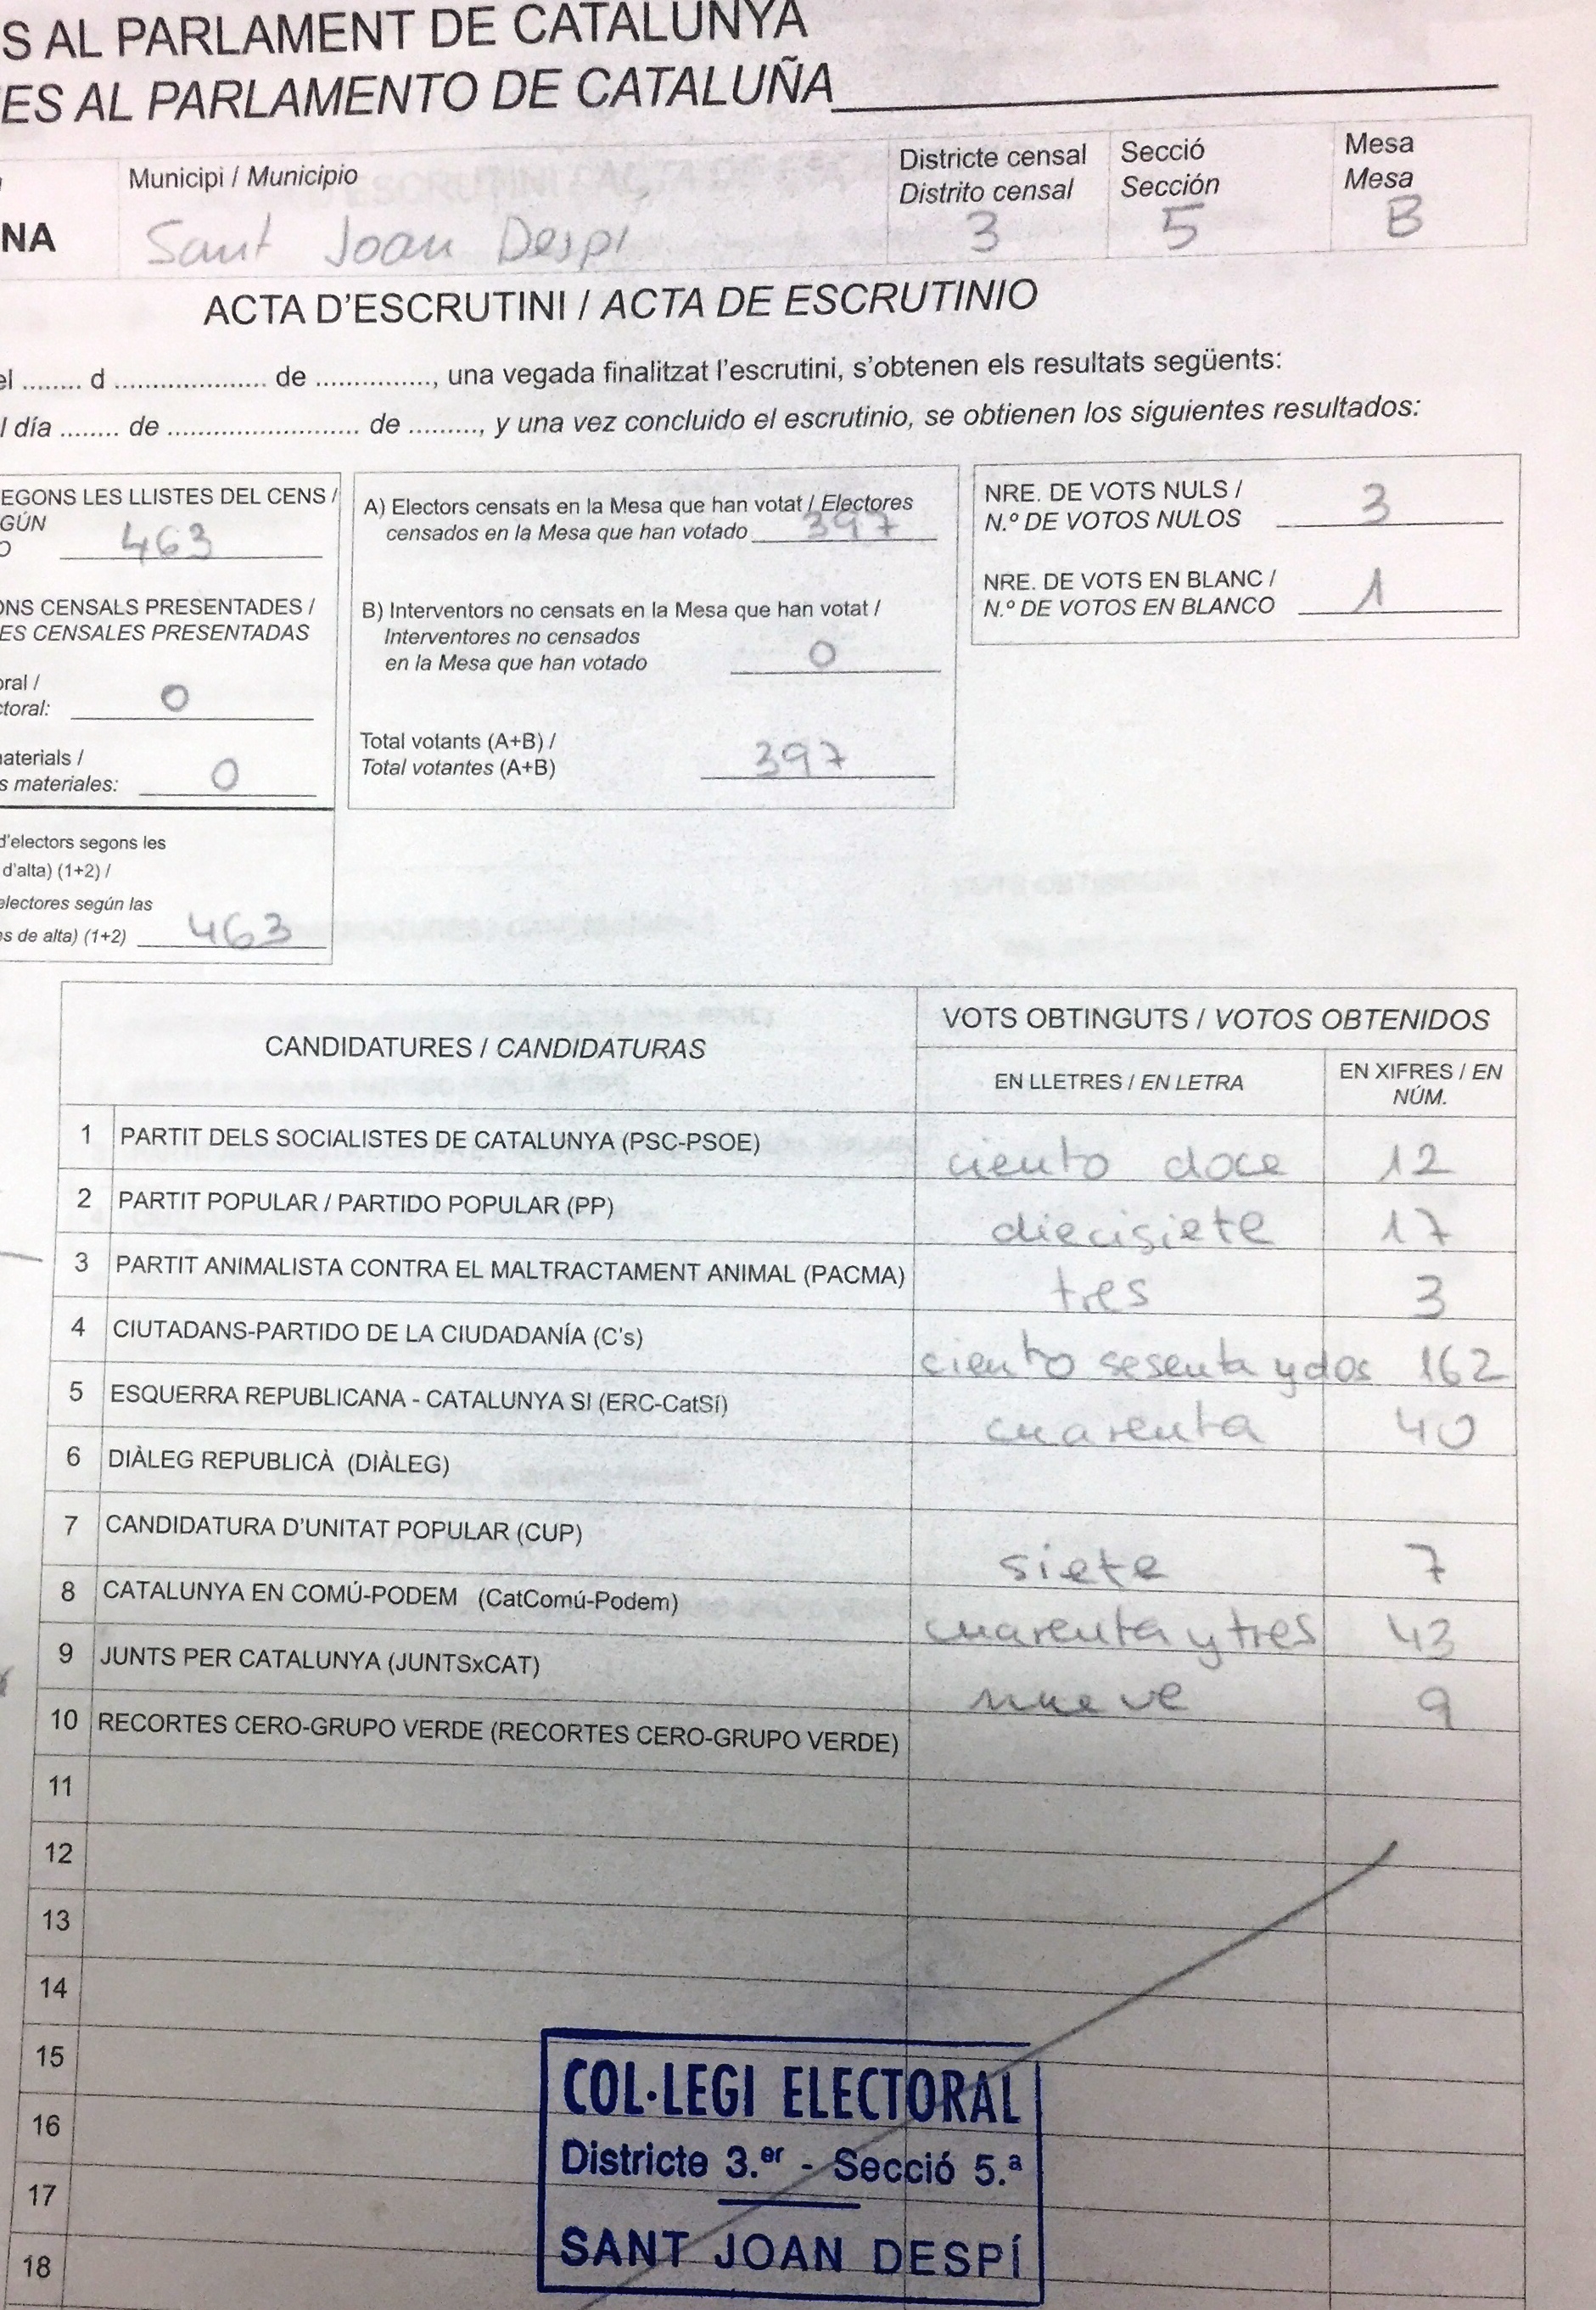 S AL PARLAMENT DE CATALUNYA
ES AL PARLAMENTO DE CATALUÑA
Municipi / Municipio
Districte censal
Distrito censal
Secció
Sección
Mesa
Mesa
NA
Sant Joan Despi
3
5
B
ACTA D'ESCRUTINI / ACTA DE ESCRUTINIO
el ........ d .................... de ..............., una vegada finalitzat l'escrutini, s'obtenen els resultats següents:
l día ........ de ......................... de ........., y una vez concluido el escrutinio, se obtienen los siguientes resultados:
EGONS LES LLISTES DEL CENS /
GÚN
O 463
ONS CENSALS PRESENTADES /
ES CENSALES PRESENTADAS
oral /
ctoral: 0
naterials /
s materiales: 0
d'electors segons les
d'alta) (1+2) /
electores según las
es de alta) (1+2) 463
A) Electors censats en la Mesa que han votat / Electores
censados en la Mesa que han votado 397
B) Interventors no censats en la Mesa que han votat /
Interventores no censados
en la Mesa que han votado 0
Total votants (A+B) /
Total votantes (A+B) 397
NRE. DE VOTS NULS /
N.º DE VOTOS NULOS 3
NRE. DE VOTS EN BLANC /
N.º DE VOTOS EN BLANCO 1
CANDIDATURES / CANDIDATURAS
VOTS OBTINGUTS / VOTOS OBTENIDOS
EN LLETRES / EN LETRA
EN XIFRES / EN
NÚM.
1 PARTIT DELS SOCIALISTES DE CATALUNYA (PSC-PSOE) ciento doce 12
2 PARTIT POPULAR / PARTIDO POPULAR (PP) diecisiete 17
3 PARTIT ANIMALISTA CONTRA EL MALTRACTAMENT ANIMAL (PACMA) tres 3
4 CIUTADANS-PARTIDO DE LA CIUDADANÍA (C's) ciento sesenta y dos 162
5 ESQUERRA REPUBLICANA - CATALUNYA SI (ERC-CatSí) cuarenta 40
6 DIÀLEG REPUBLICÀ (DIÀLEG)
7 CANDIDATURA D'UNITAT POPULAR (CUP) siete 7
8 CATALUNYA EN COMÚ-PODEM (CatComú-Podem) cuarenta y tres 43
9 JUNTS PER CATALUNYA (JUNTSxCAT) nueve 9
10 RECORTES CERO-GRUPO VERDE (RECORTES CERO-GRUPO VERDE)
11
12
13
14
15
16
17
18
COL·LEGI ELECTORAL
Districte 3.er - Secció 5.ª
SANT JOAN DESPÍ